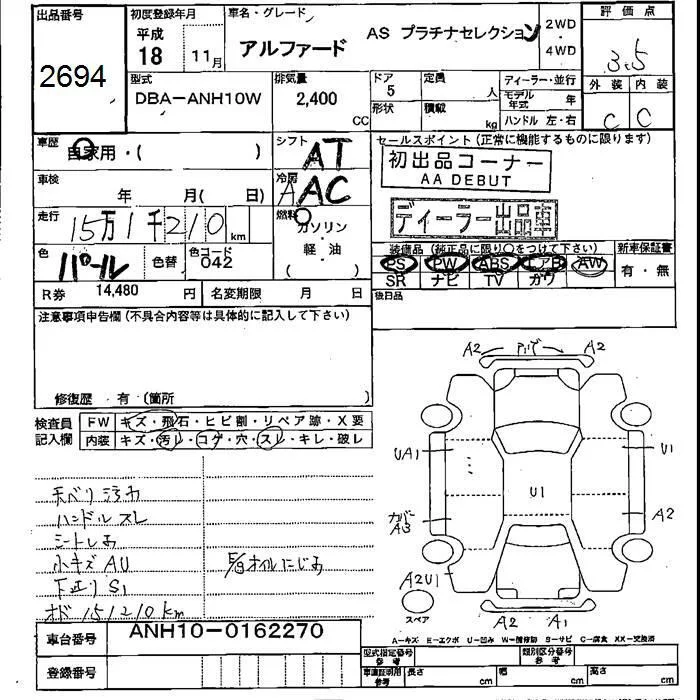 出品番号
2694
初度登録年月
平成
18 11月
車名・グレード
アルファード
AS プラチナセレクション
2WD
4WD
評価点
3.5
外装 内装
C C
型式
DBA-ANH10W
排気量
2,400
CC
ドア
5
定員
人
形状
積載
kg
ディーラー・並行
モデル年式 年
ハンドル 左・右
車歴
自家用・( )
シフト
AT
車検
年 月( 日)
冷房
AAC
走行
15万1千210 km
燃料
ガソリン
軽・油
( )
色
パール
色替
色コード
042
R券 14,480 円
名変期限 月 日
セールスポイント(正常に機能するものに限ります)
初出品コーナー
AA DEBUT
ディーラー出品車
装備品(純正品に限り○をつけて下さい)
新車保証書
PS PW ABS エアB AW
有・無
SR ナビ TV ガワ
後日品
注意事項申告欄(不具合内容等は具体的に記入して下さい)
修復歴・有(箇所 )
検査員記入欄
FW キズ・飛石・ヒビ割・リペア跡・X要
内装 キズ・汚レ・コゲ・穴・スレ・キレ・破レ
天ベリ汚れ
ハンドルスレ
シートしあ
小キズAU
下廻りS1
オド151210km
E/gオイルにじみ
A2 A2
UA1 U1
U1
カバーA3
A2
A2U1
スペア
A2 A1
A-キズ E-エクボ U-凹み W-補修跡 S-サビ C-腐食 XX-交換済
車台番号
ANH10-0162270
登録番号
型式指定番号
参考
類別区分番号
参考
車庫証明用
参考
長さ cm 幅 cm 高さ cm